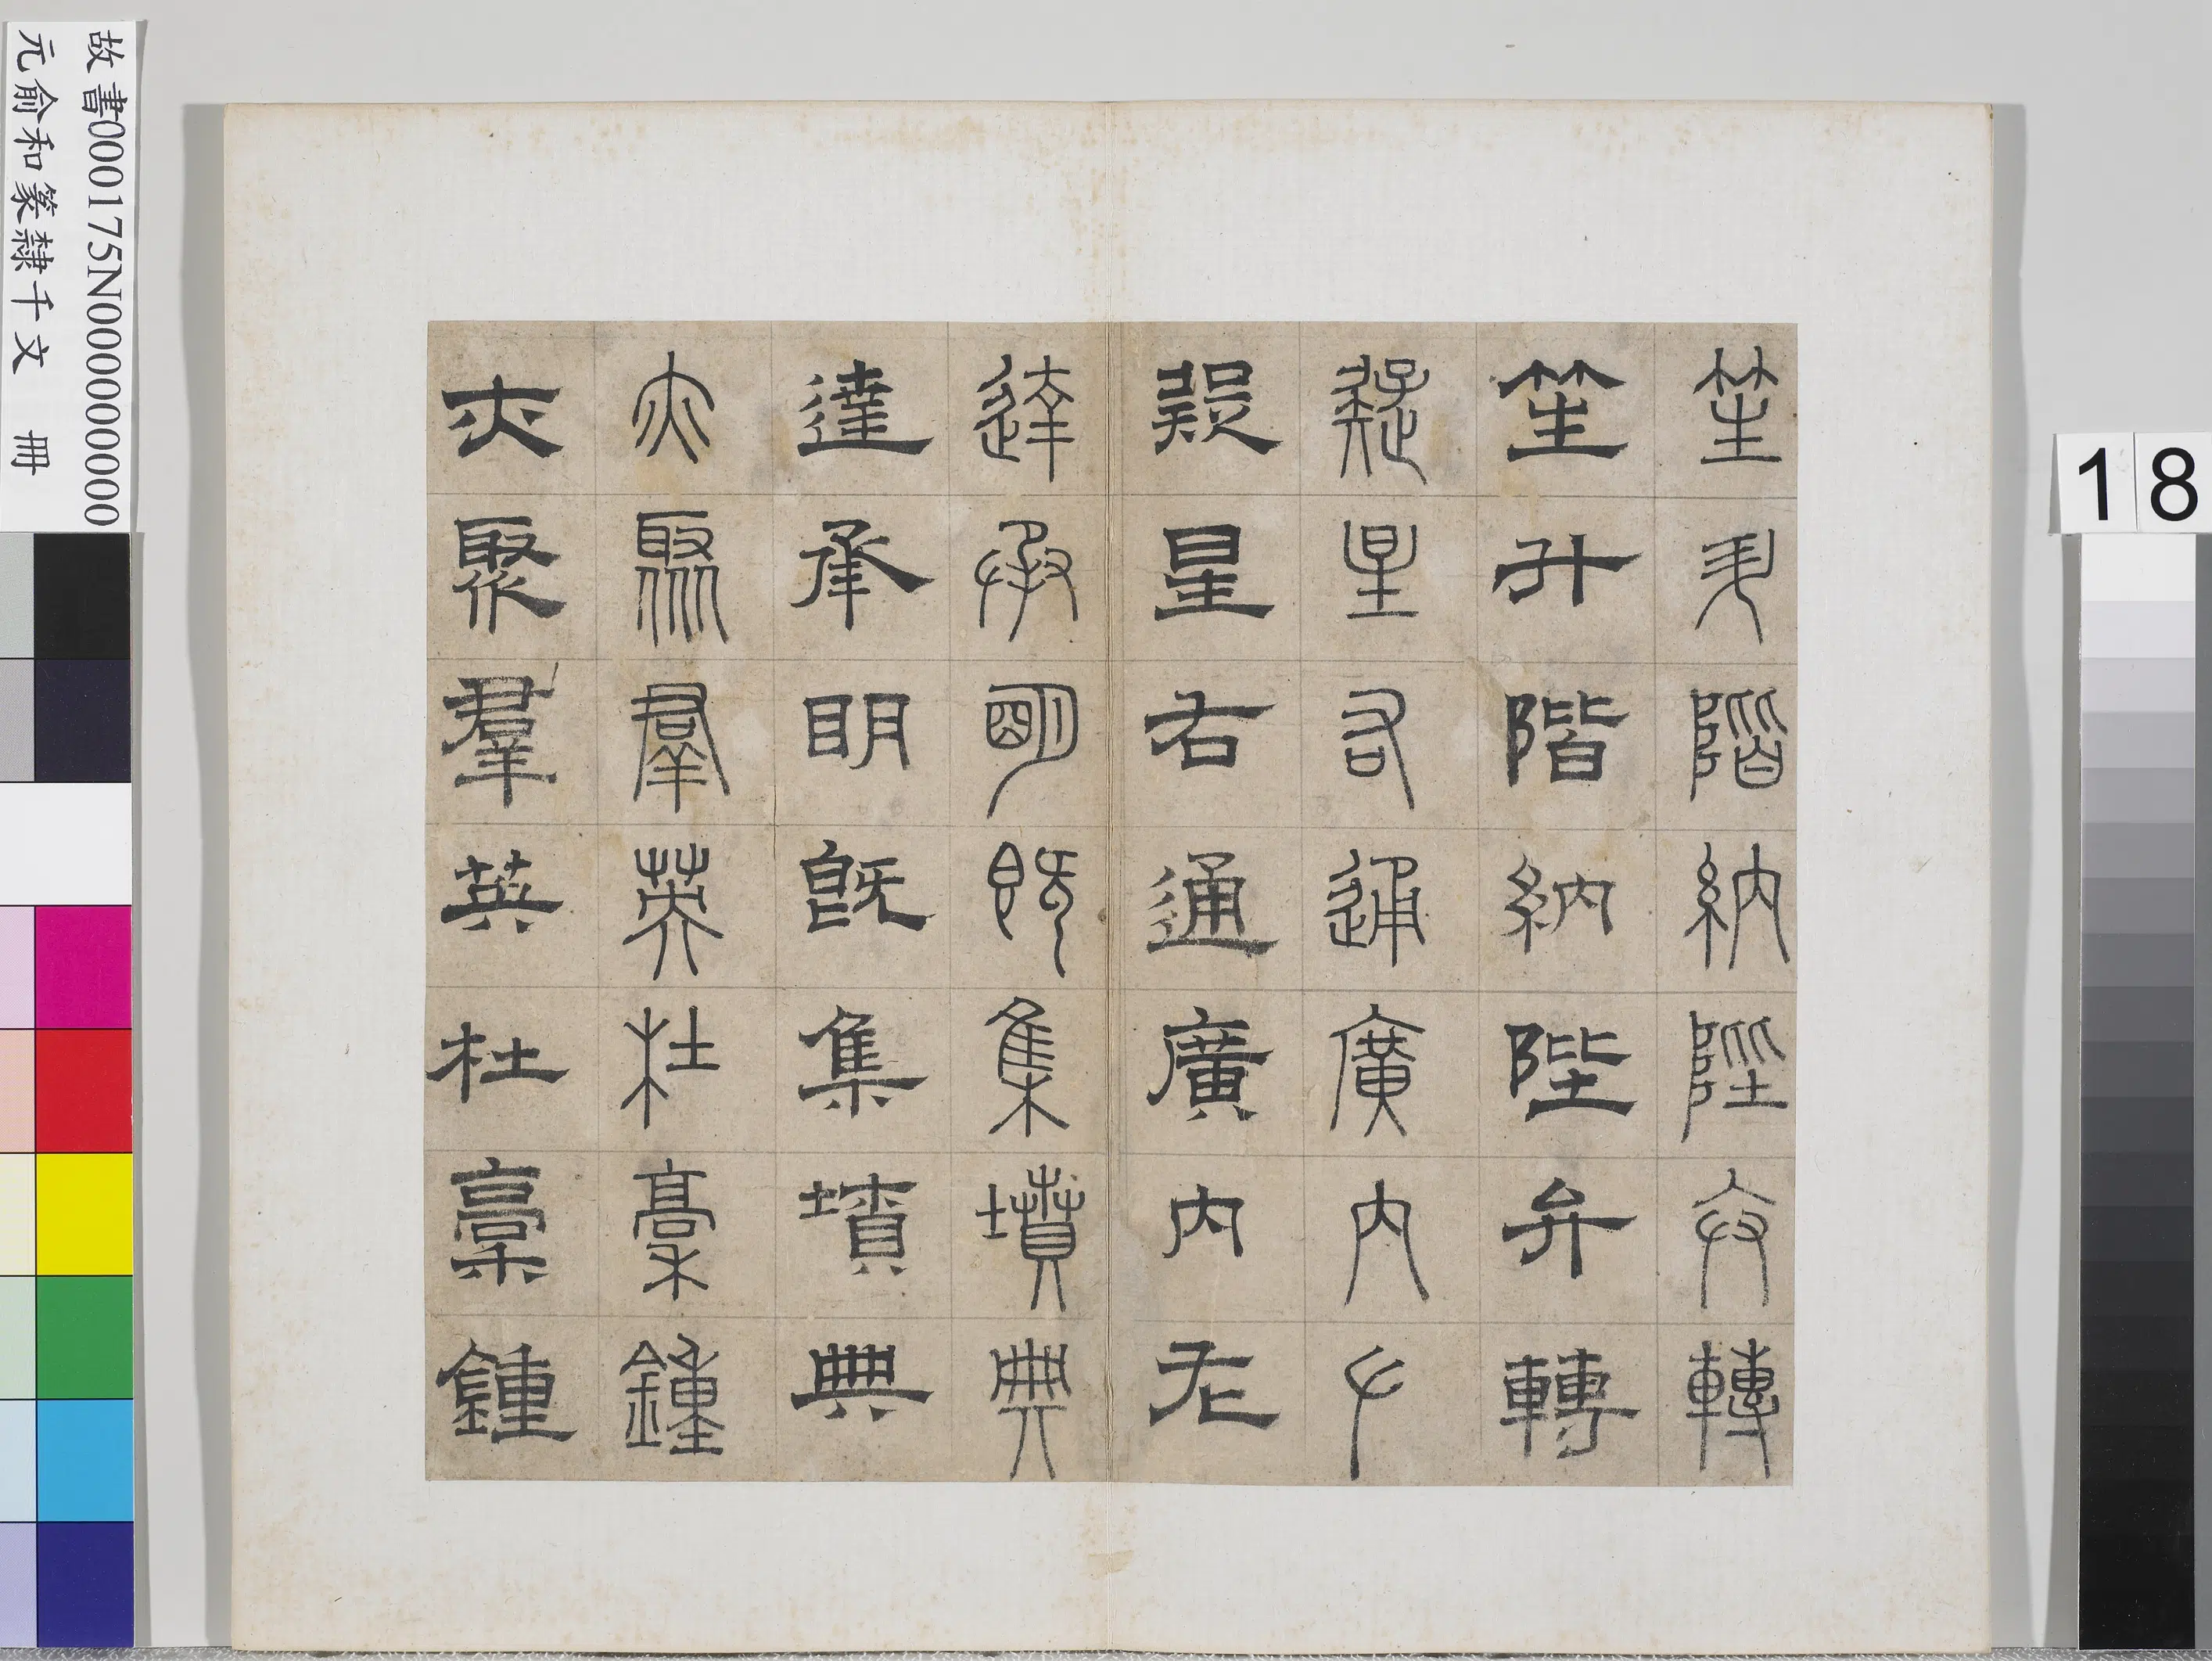 笙升階納陛弁轉
笙升階納陛弁轉
疑星右通廣內左
疑星右通廣內左
達承明既集墳典
達承明既集墳典
亦聚羣英杜稾鍾
亦聚羣英杜稾鍾
故書000175N000000000000
元俞和篆隸千文 冊
18